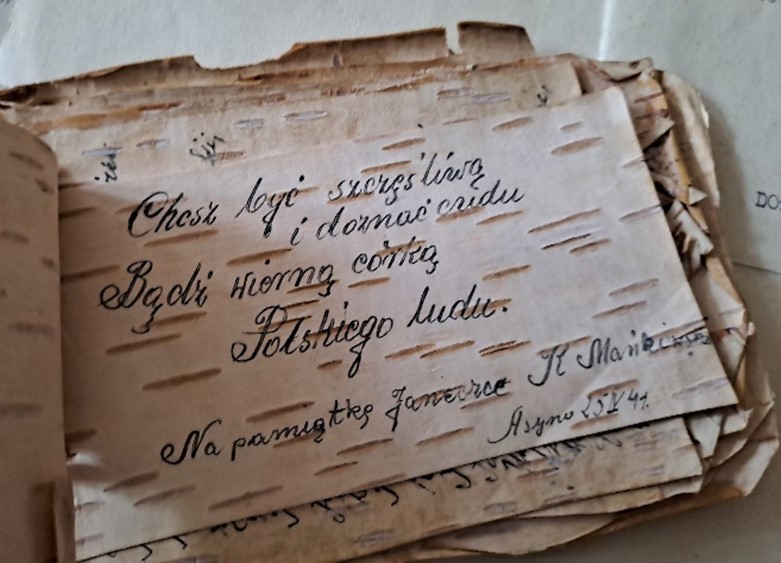 Chcesz być szczęśliwą
i doznać cudu
Bądź wierną córką
Polskiego ludu.
Na pamiątkę Janeczce K
Asyno 25 IV 41.